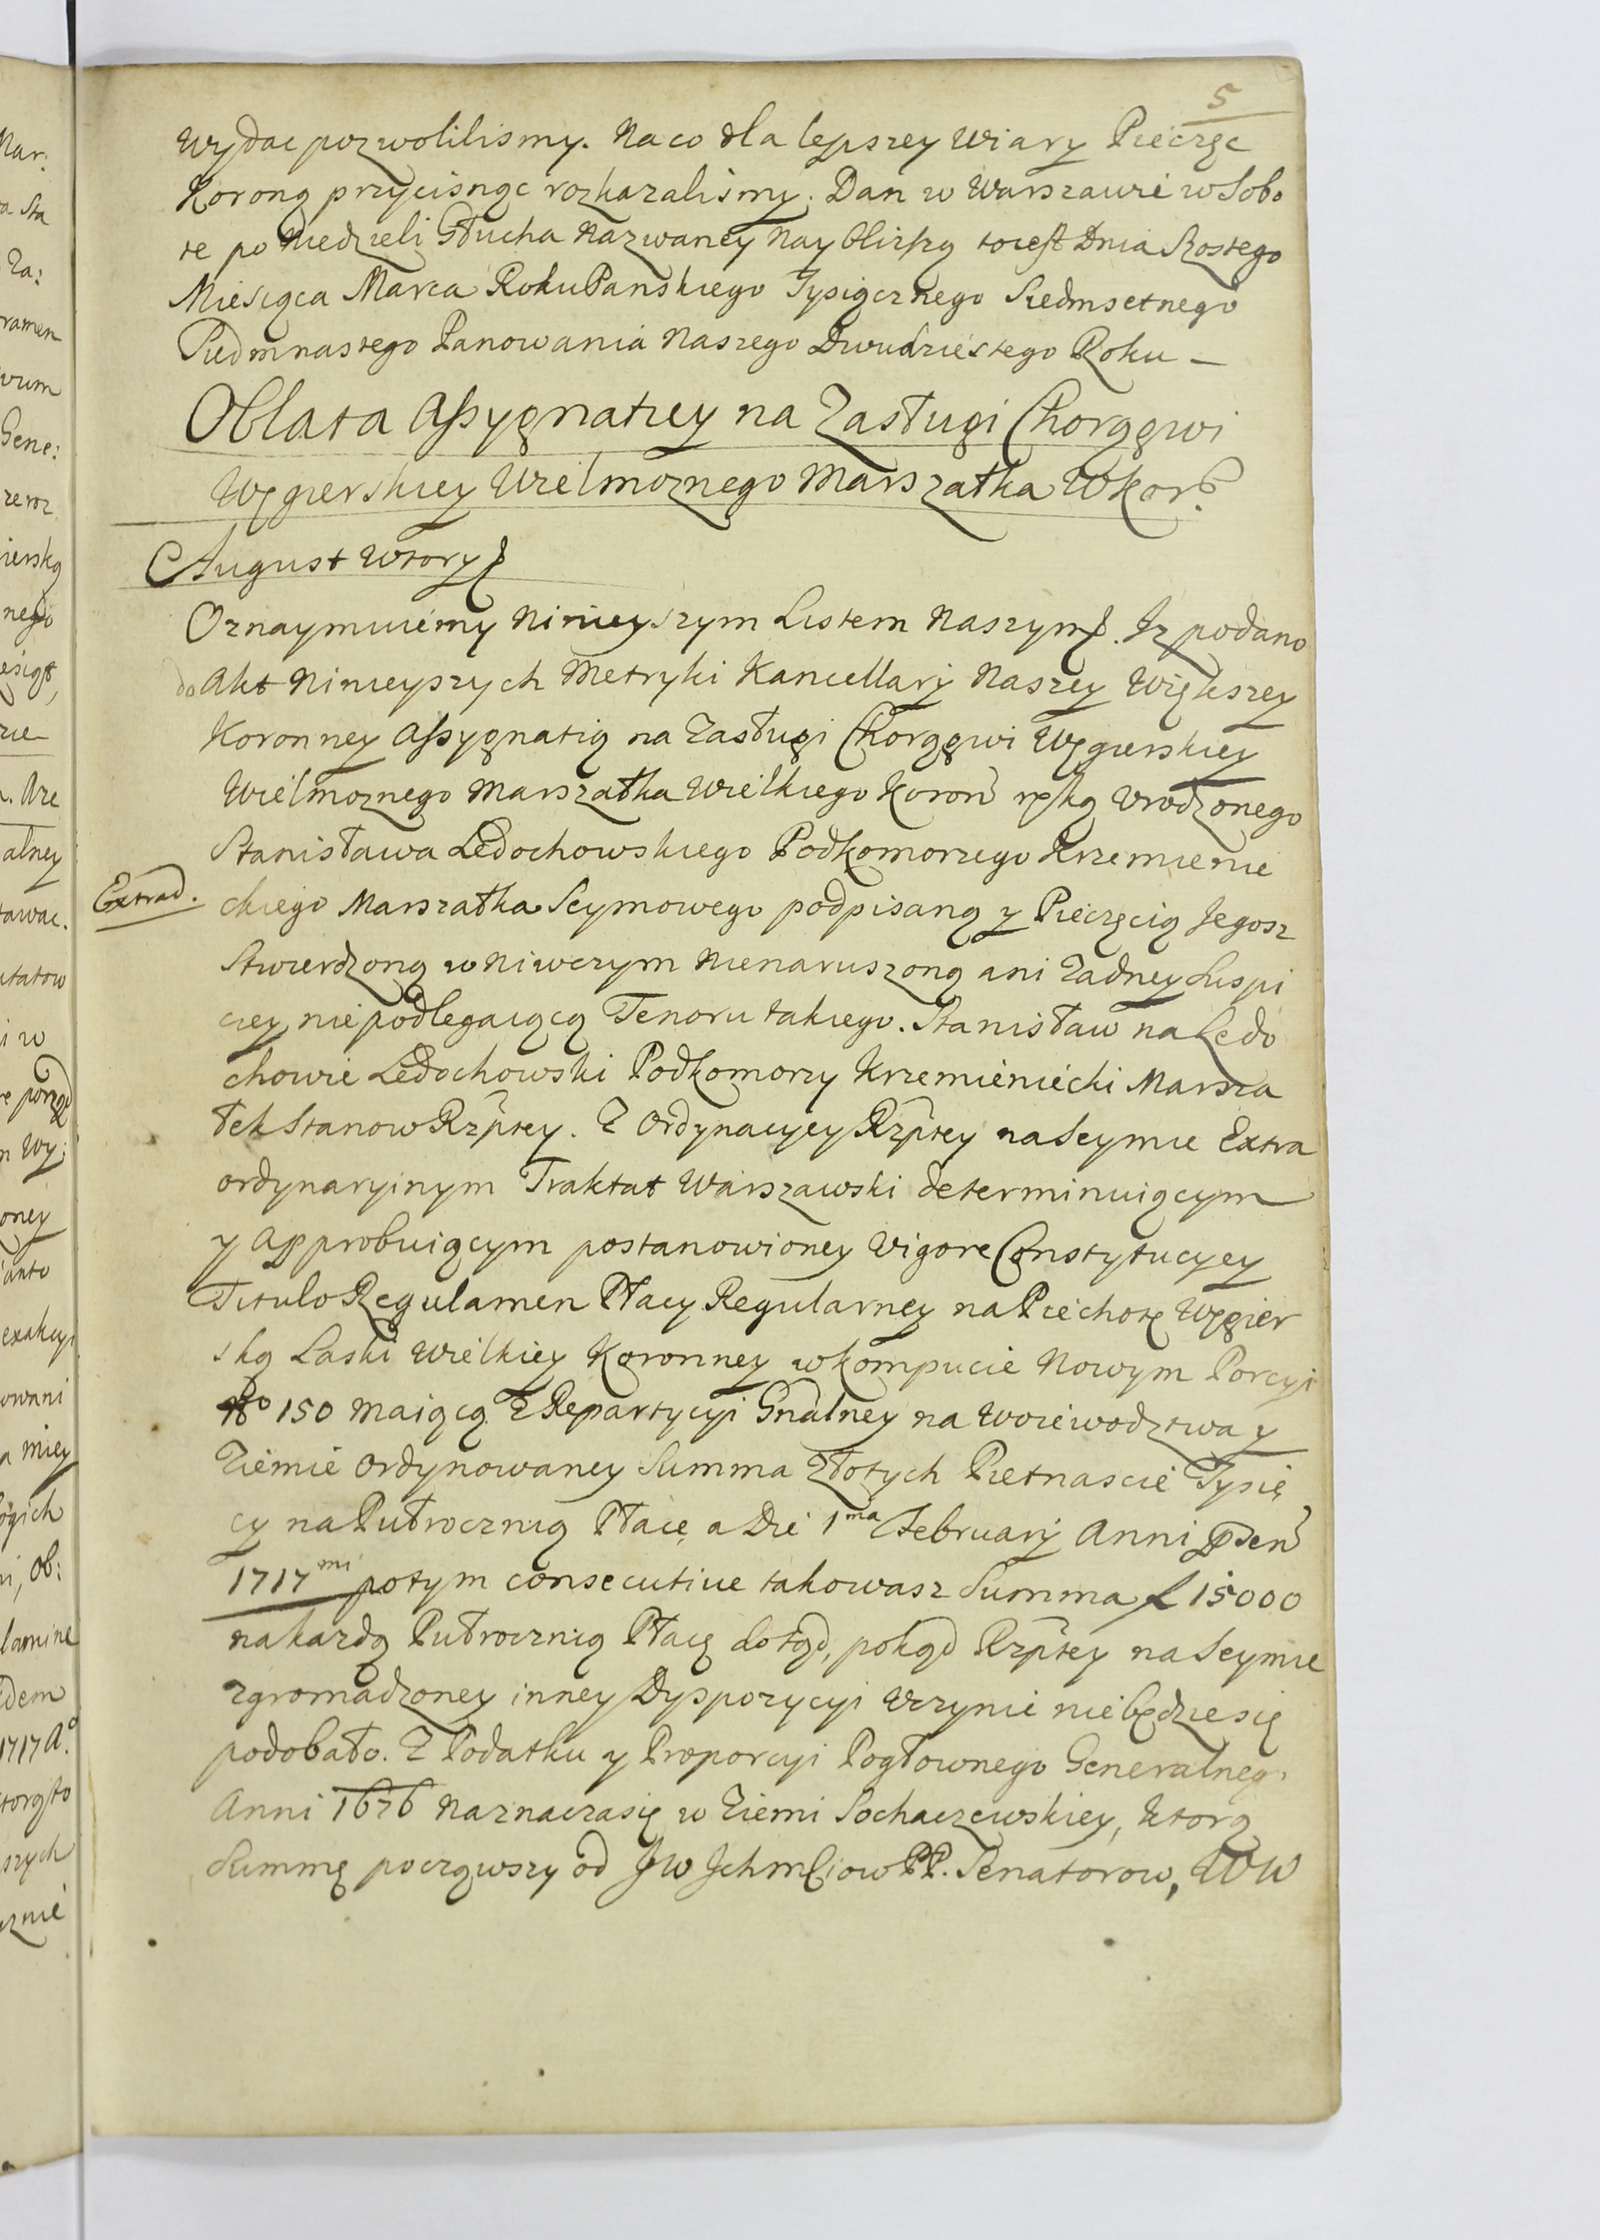 5
Wydac pozwolilismy. Na co dla lepszey Wiary Pieczęc
Koronną przycisnąc rozkazalismy. Dan w Warszawie w Sobo
te po Niedzieli Głucha Nazwaney Nay bliższą to iest Dnia Szostego
Miesiąca Marca Roku Panskiego Tysiącznego Siedmsetnego
Siedmnastego Panowania Naszego Dwudziestego Roku —
Oblata Assygnatiey na Zasługi Chorągwi
Węgierskiey Wielmoznego Marszałka W Kor:
August Wtory
Oznaymuiemy Ninieyszym Listem Naszym. Iz podano
do Akt Ninieyszych Metryki Kancellaryi Naszey Większey
Koronney Assygnatią na Zasługi Chorągwi Węgierskiey
Wielmoznego Marszałka Wielkiego Koron ręką Urodzonego
Stanisława Ledochowskiego Podkomorzego Krzemienie
Extrad.
ckiego Marszałka Seymowego podpisaną y Pieczęcią Iegosz
Stwierdzoną w Niwczym Nienaruszoną ani Zadney Suspi
ciey nie podlegaiącą Tenoru takiego. Stanisław na Ledo
chowie Ledochowski Podkomorzy Krzemieniecki Marsza
łek Stanow Rzptey. Z Ordynacyey Rzptey na Seymie Extra
ordynaryinym Traktat Warszawski determinuiącym
y Approbuiącym postanowioney Vigore Constytucyey
Titulo Regulamen Płacy Regularney na Piechotę Węgier
ską Laski Wielkiey Koronney w kompucie Nowym Porcyi
No 150 maiącą Z Repartycyi Gnalney na Woiewodztwa y
Ziemie Ordynowaney Summa Złotych Pietnascie Tysię
cy na Pułroczną Płacę a Die 1ma February Anni Psen
1717mi potym consecutive takowasz Summa f 15000
na kazdą Pułroczną Płacę dotąd, pokąd Rzptey na Seymie
zgromadzoney inney Dyspozycyi Uczynie nie będzie się
podobało. Z Podatku y Proporcyi Pogłownego Generalnego
Anni 1676 Naznacza się w Ziemi Sochaczewskiey, ktorą
Summę począwszy od JW Ichmciow PP. Senatorow, WW